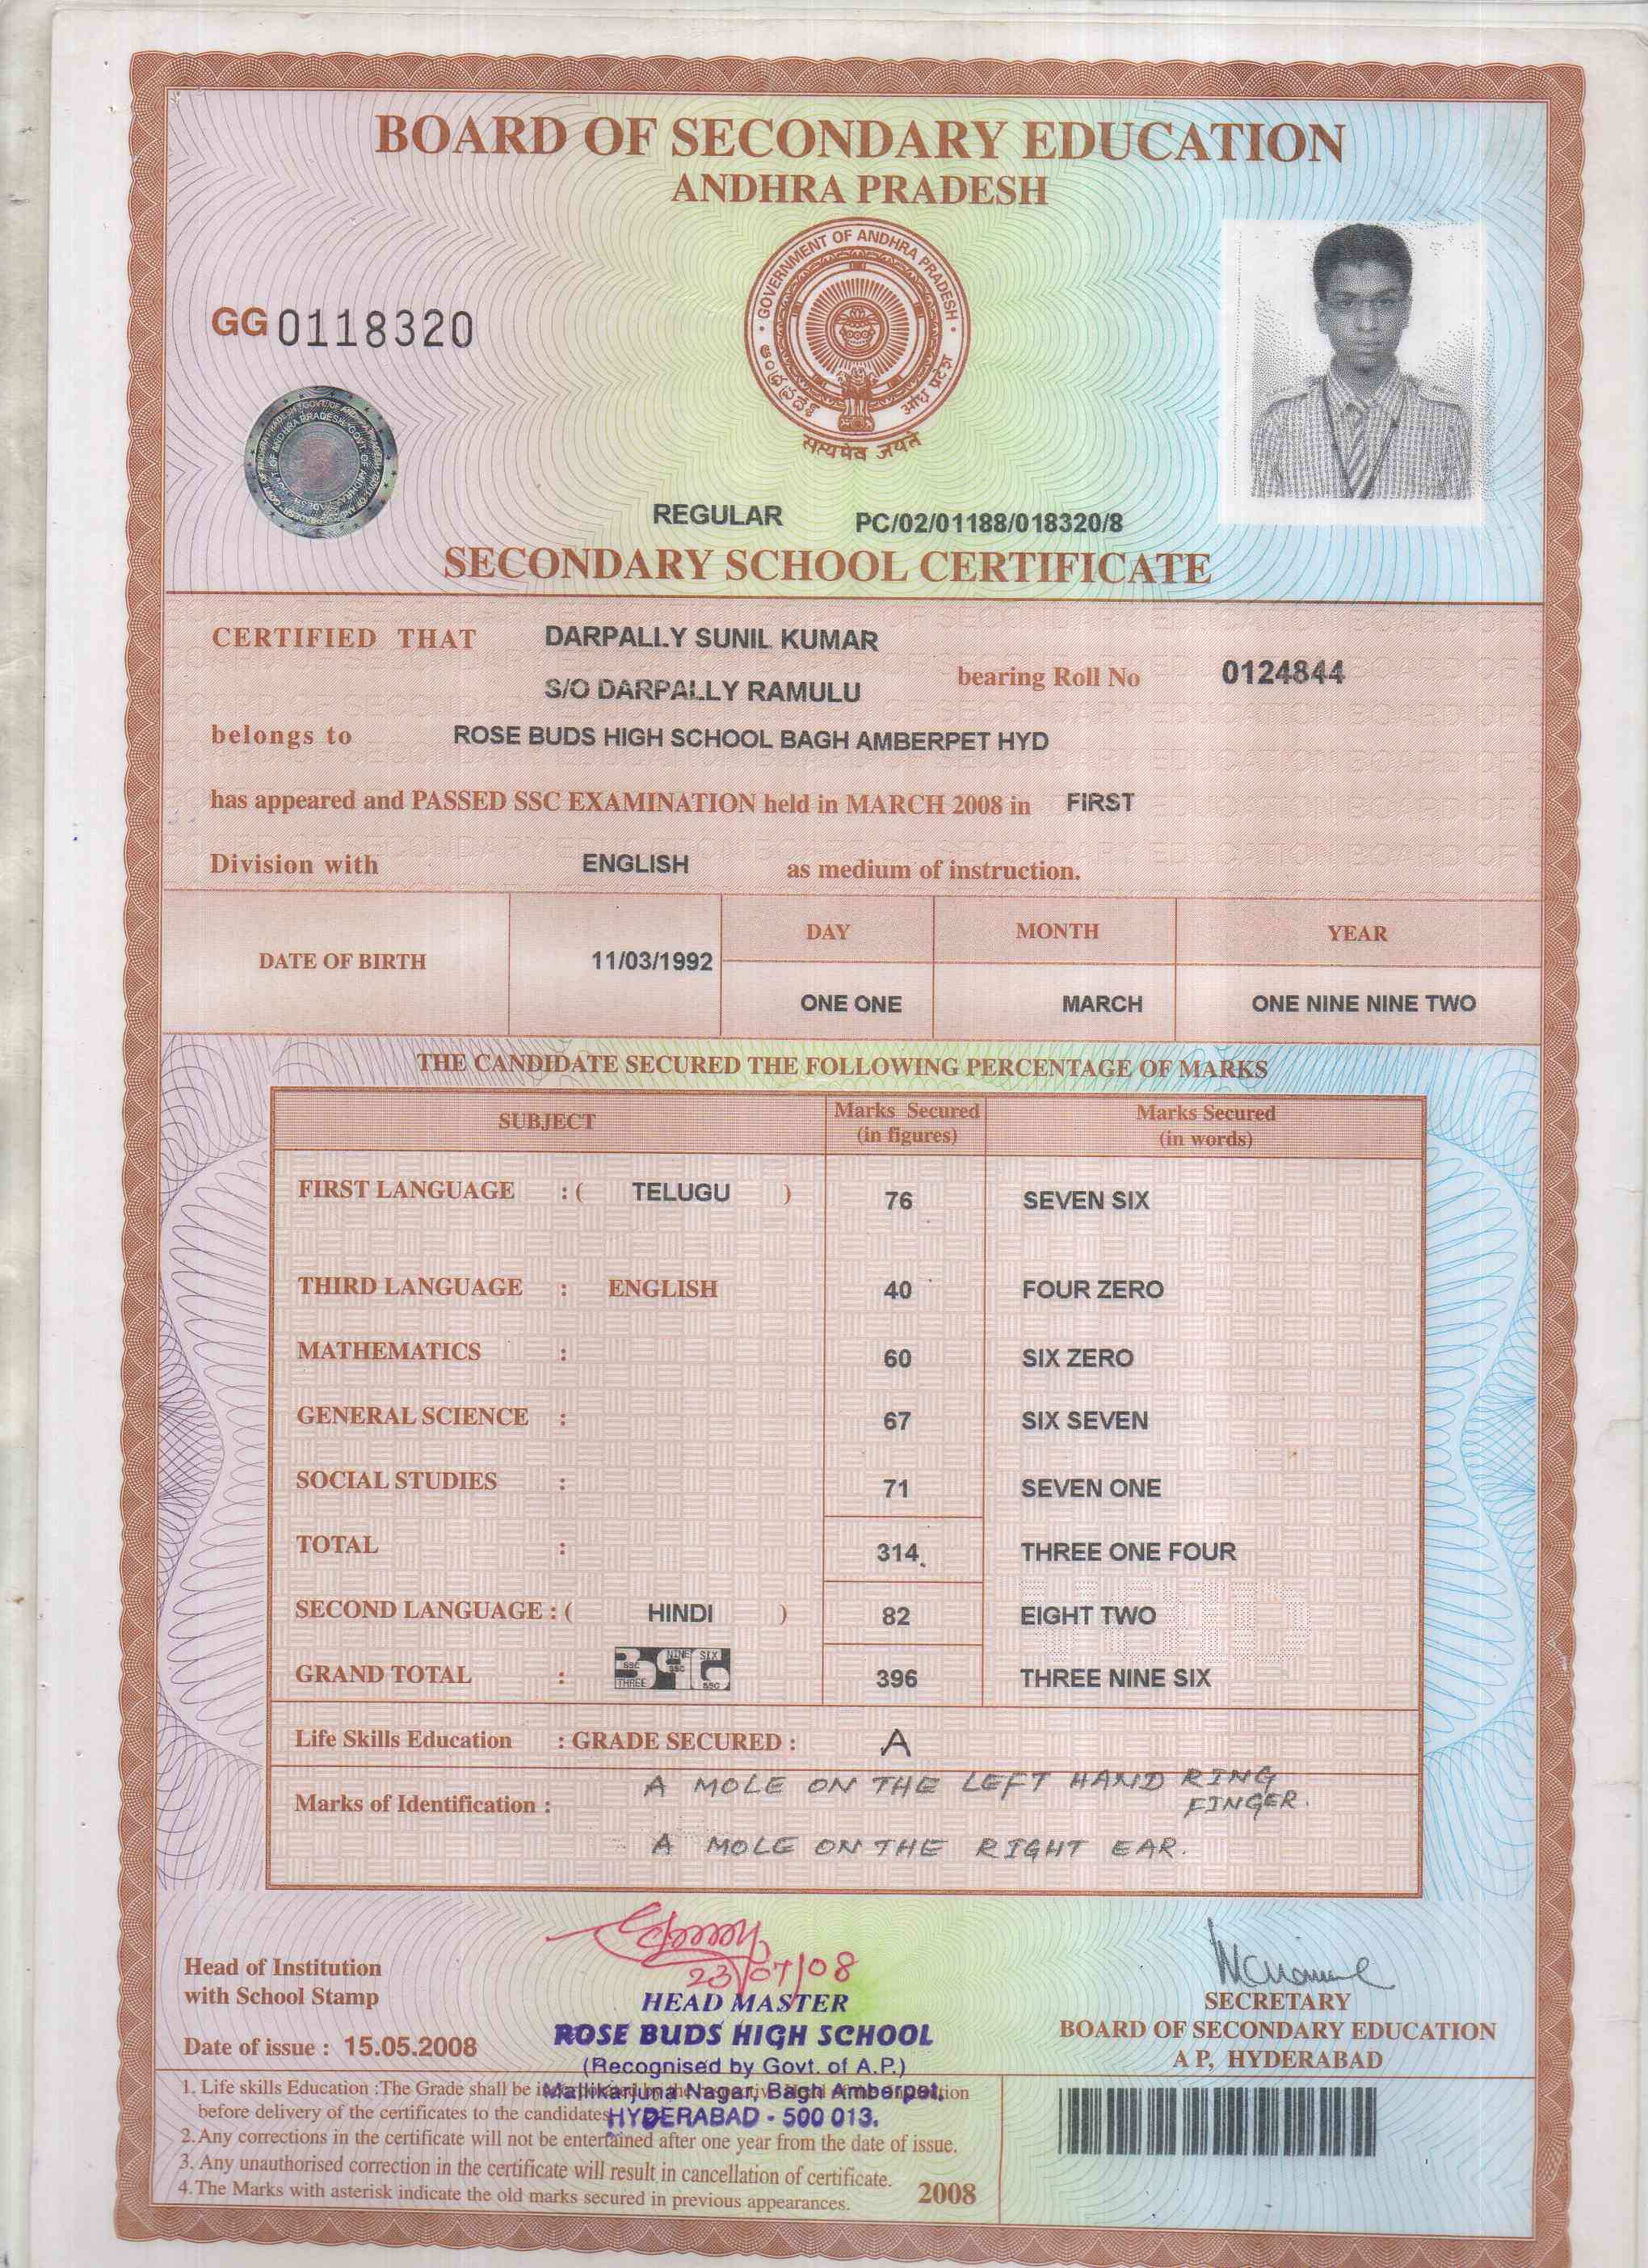 BOARD OF SECONDARY EDUCATION
ANDHRA PRADESH
GOVERNMENT OF ANDHRA PRADESH
ఆంధ్రప్రదేశ్
आंध्र प्रदेश
सत्यमेव जयते
GG 0118320
REGULAR PC/02/01188/018320/8
SECONDARY SCHOOL CERTIFICATE
CERTIFIED THAT DARPALLY SUNIL KUMAR
S/O DARPALLY RAMULU bearing Roll No 0124844
belongs to ROSE BUDS HIGH SCHOOL BAGH AMBERPET HYD
has appeared and PASSED SSC EXAMINATION held in MARCH 2008 in FIRST
Division with ENGLISH as medium of instruction.
DAY MONTH YEAR
DATE OF BIRTH 11/03/1992
ONE ONE MARCH ONE NINE NINE TWO
THE CANDIDATE SECURED THE FOLLOWING PERCENTAGE OF MARKS
SUBJECT Marks Secured (in figures) Marks Secured (in words)
FIRST LANGUAGE : ( TELUGU ) 76 SEVEN SIX
THIRD LANGUAGE : ENGLISH 40 FOUR ZERO
MATHEMATICS : 60 SIX ZERO
GENERAL SCIENCE : 67 SIX SEVEN
SOCIAL STUDIES : 71 SEVEN ONE
TOTAL : 314 THREE ONE FOUR
SECOND LANGUAGE : ( HINDI ) 82 EIGHT TWO
GRAND TOTAL : 396 396 THREE NINE SIX
Life Skills Education : GRADE SECURED : A
A MOLE ON THE LEFT HAND RING
Marks of Identification : FINGER.
A MOLE ON THE RIGHT EAR.
23/07/08
Head of Institution
with School Stamp
HEAD MASTER
ROSE BUDS HIGH SCHOOL
(Recognised by Govt. of A.P.)
Mallikarjuna Nagar, Bagh Amberpet,
HYDERABAD - 500 013.
SECRETARY
BOARD OF SECONDARY EDUCATION
A P, HYDERABAD
Date of issue : 15.05.2008
1. Life skills Education :The Grade shall be
before delivery of the certificates to the candidates
2. Any corrections in the certificate will not be entertained after one year from the date of issue.
3. Any unauthorised correction in the certificate will result in cancellation of certificate.
4. The Marks with asterisk indicate the old marks secured in previous appearances.
2008